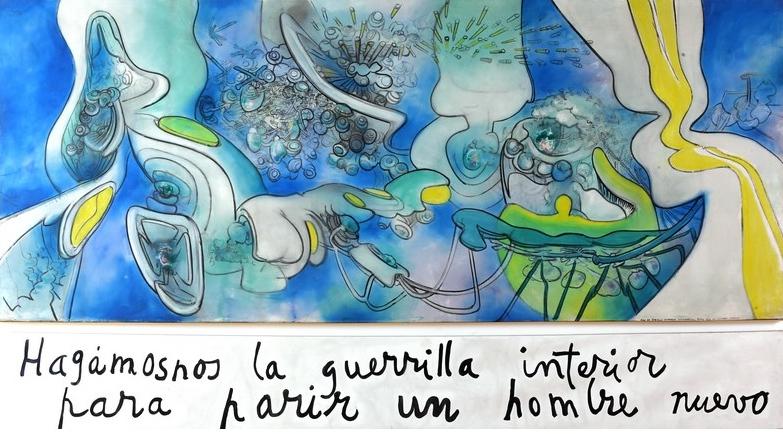 Hagámosnos la guerrilla interior
para parir un hombre nuevo